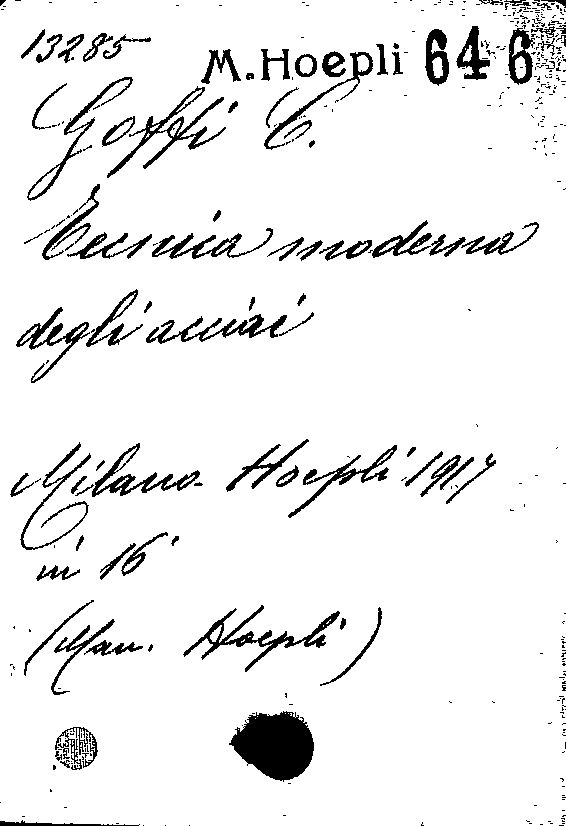 13285 M. Hoepli 646
Goffi C.
Tecnica moderna
degli acciai
Milano - Hoepli 1917
in 16°
(Man. Hoepli)